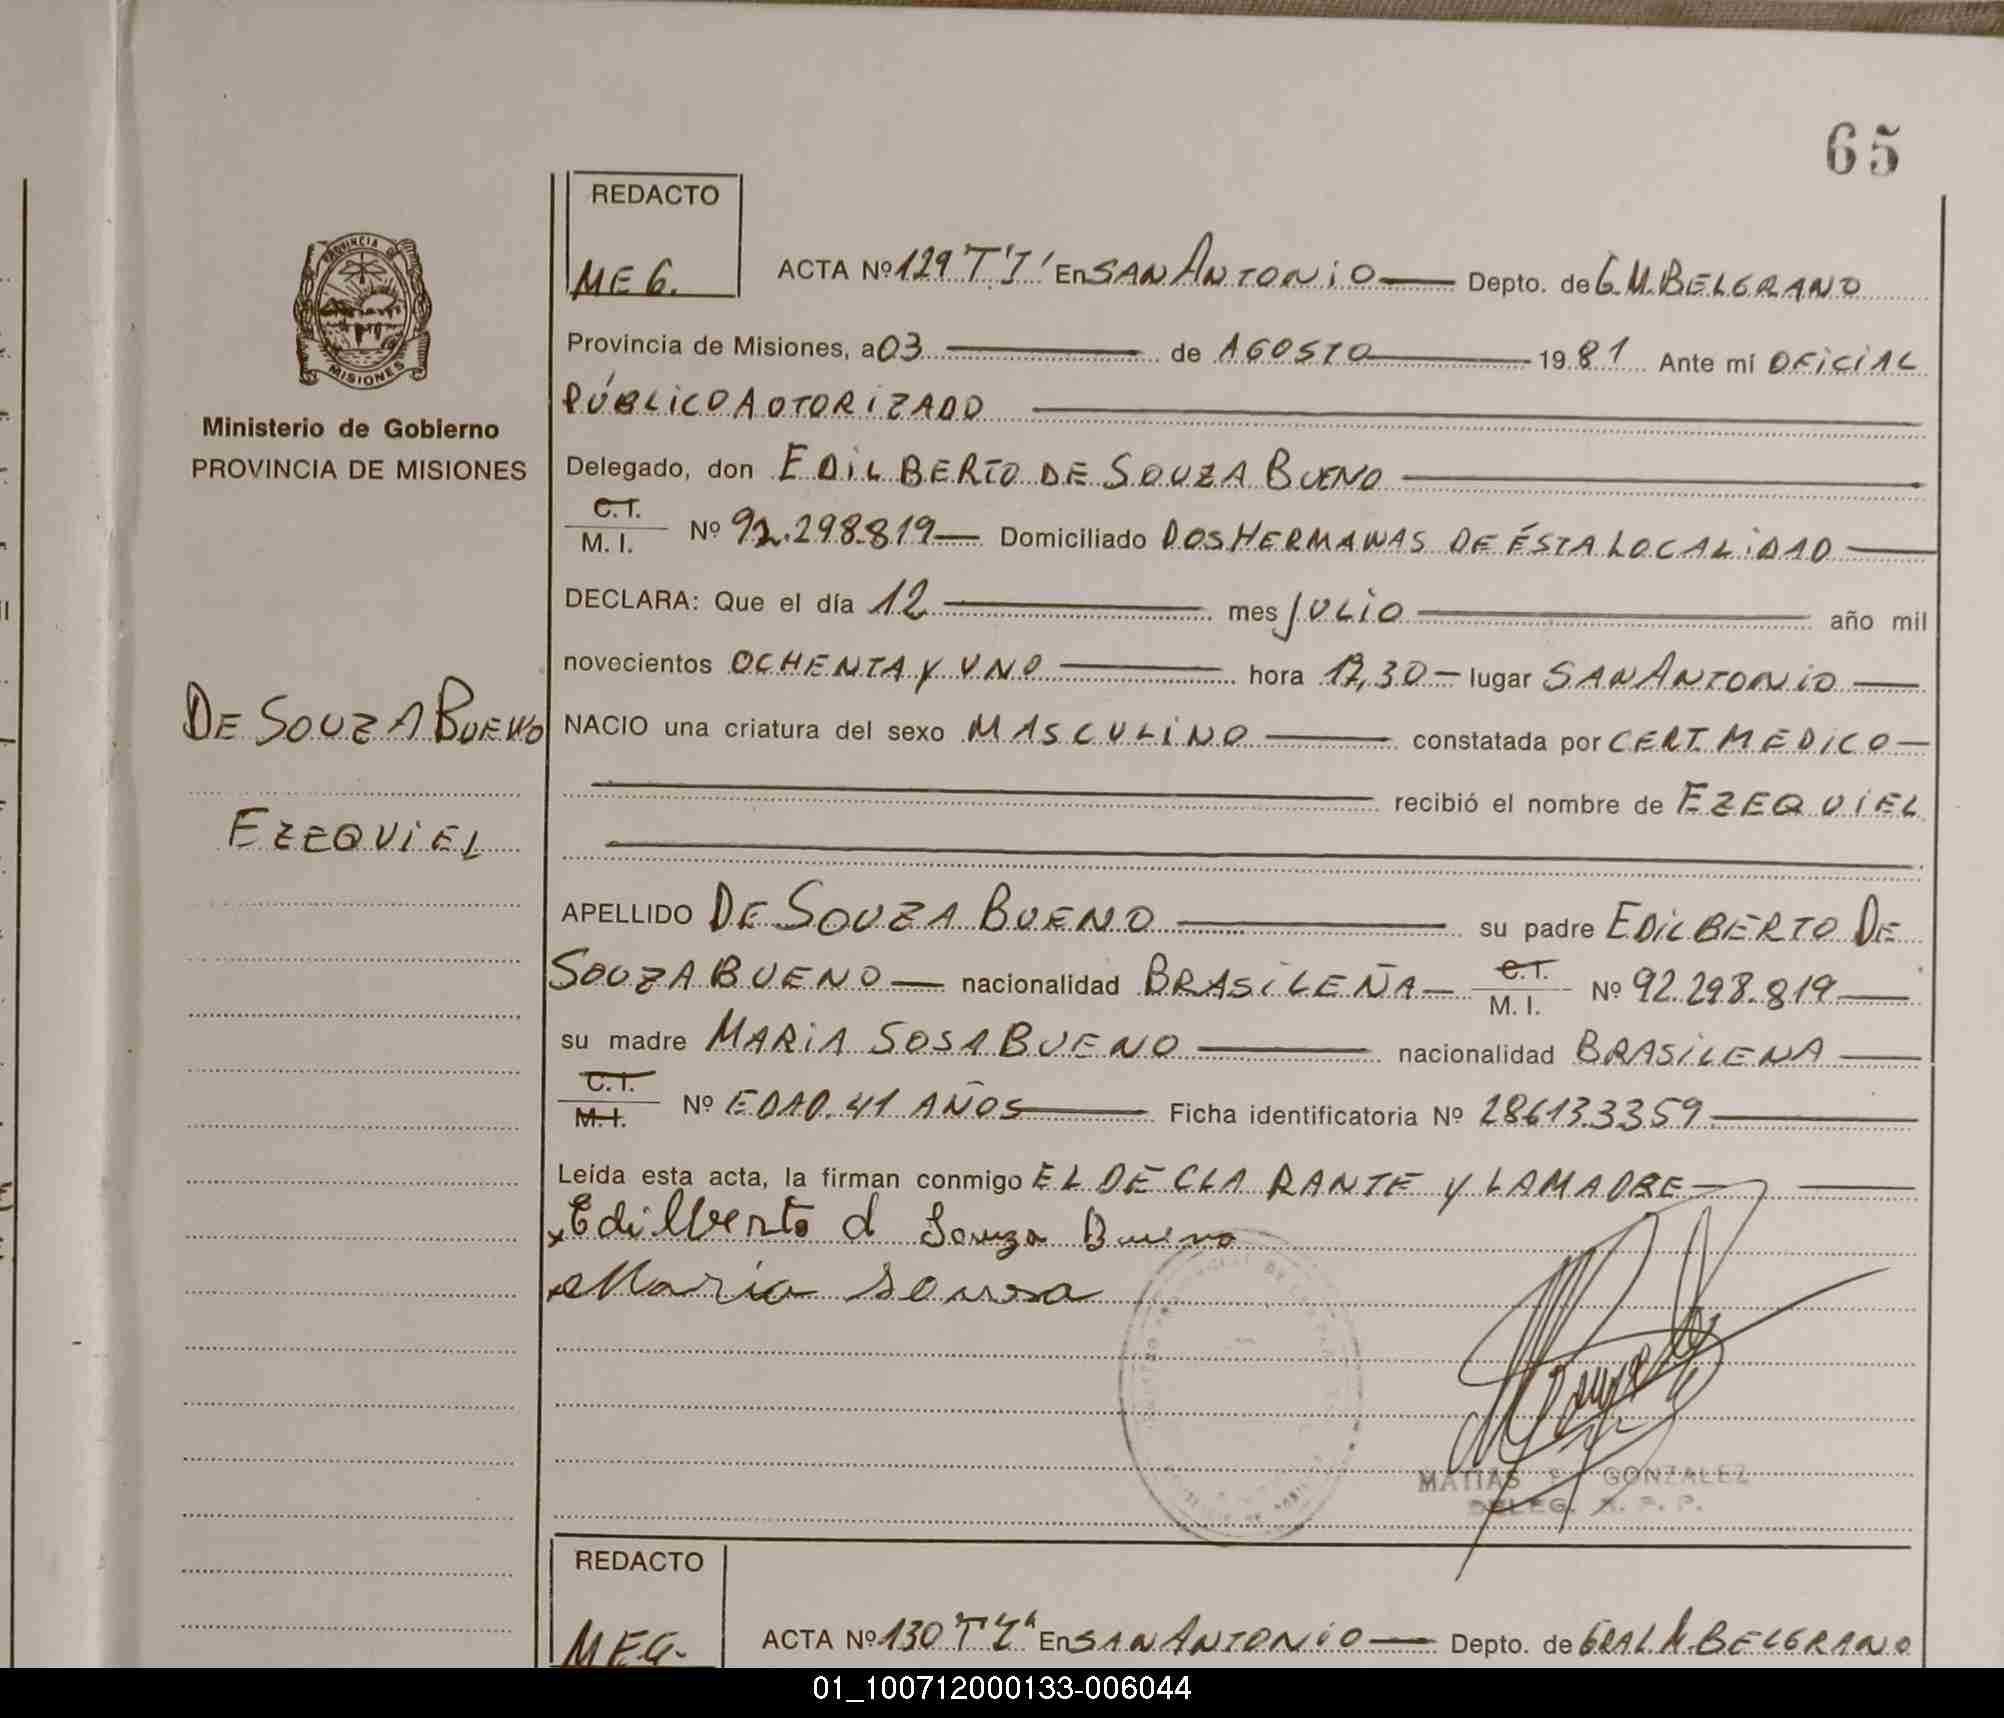 65
REDACTO
MEG.
ACTA Nº 129 T'I' En SAN ANTONIO Depto. de G.M. BELGRANO
Provincia de Misiones, a 03 de AGOSTO 19 81 Ante mí OFICIAL
PÚBLICO AUTORIZADO
Delegado, don EDILBERTO DE SOUZA BUENO
C.I.
M. I. Nº 92.298.819 Domiciliado DOS HERMANAS DE ÉSTA LOCALIDAD
DECLARA: Que el día 12 mes JULIO año mil
novecientos OCHENTA Y UNO hora 17,30 lugar SAN ANTONIO
NACIO una criatura del sexo MASCULINO constatada por CERT. MEDICO
recibió el nombre de EZEQUIEL
APELLIDO DE SOUZA BUENO su padre EDILBERTO DE
SOUZA BUENO nacionalidad BRASILEÑA C.I. M. I. Nº 92.298.819
su madre MARIA SOSA BUENO nacionalidad BRASILENA
C.I.
M.I. Nº EDAD. 41 AÑOS Ficha identificatoria Nº 286133359
Leída esta acta, la firman conmigo EL DECLARANTE Y LA MADRE
x Edilberto d Souza Bueno
x Maria Sousa
MATIAS GONZALEZ
DELEG. R. P. P.
PROVINCIA DE
MISIONES
Ministerio de Gobierno
PROVINCIA DE MISIONES
DE SOUZA BUENO
EZEQUIEL
REDACTO
MEG.
ACTA Nº 130 T'I" En SAN ANTONIO Depto. de GRAL M. BELGRANO
01_100712000133-006044